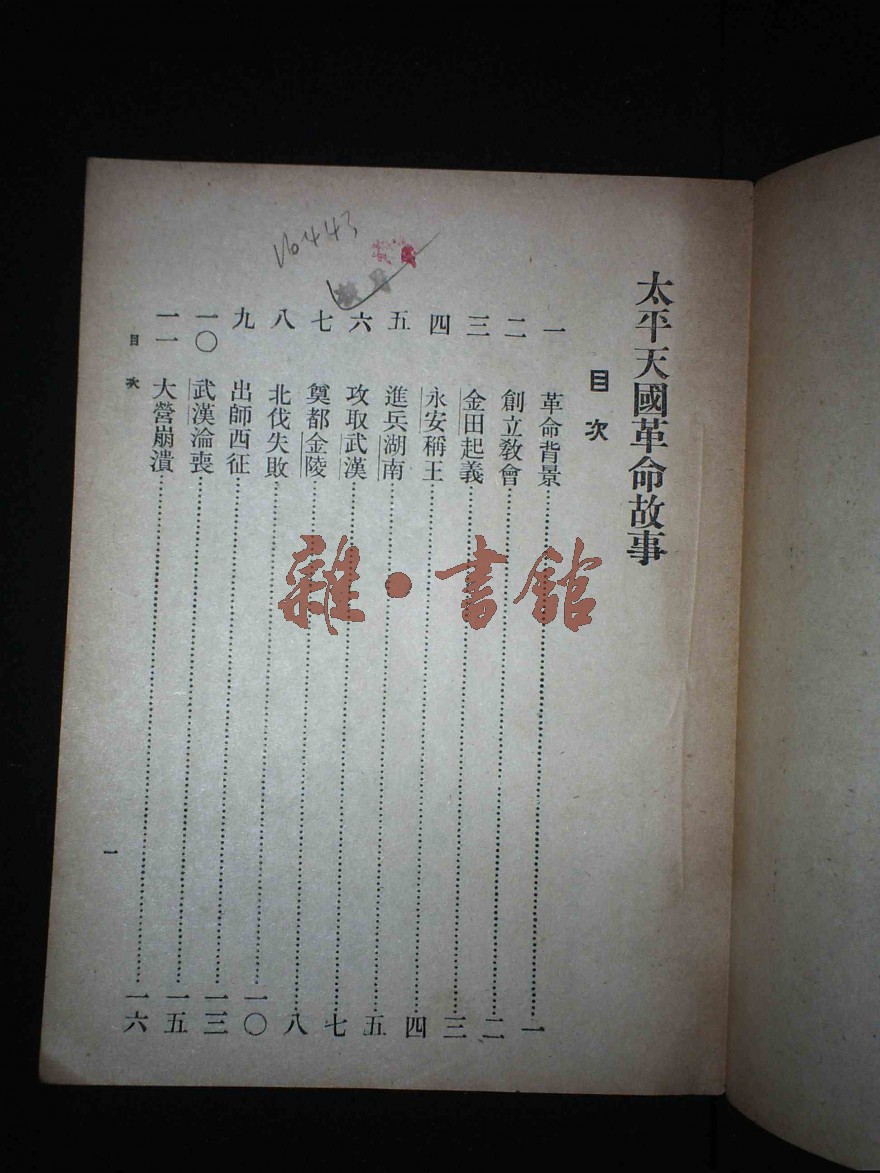 太平天國革命故事
目次
一 革命背景……一
二 創立教會……二
三 金田起義……三
四 永安稱王……四
五 進兵湖南……五
六 攻取武漢……七
七 奠都金陵……八
八 北伐失敗……一〇
九 出師西征……一三
一〇 武漢淪喪……一五
一一 大營崩潰……一六
目次
一
16443
雜·書館